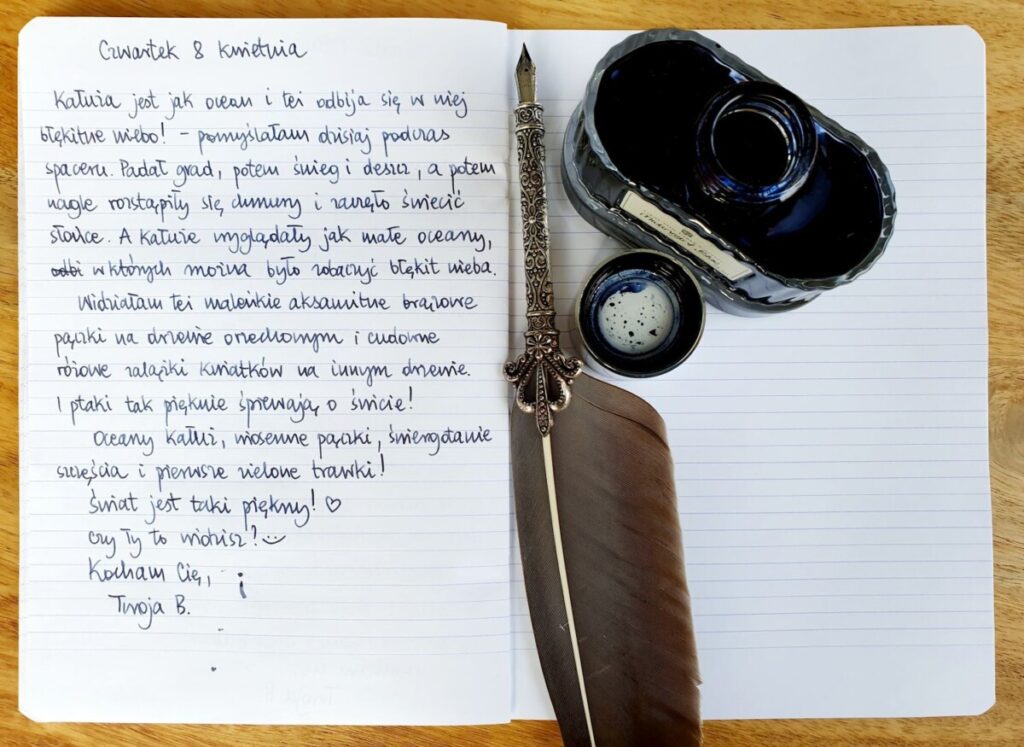 Czwartek 8 kwietnia
Kałuża jest jak ocean i też odbija się w niej
błękitne niebo! - pomyślałam dzisiaj podczas
spaceru. Padał grad, potem śnieg i deszcz, a potem
nagle rozstąpiły się chmury i zaczęło świecić
słońce. A kałuże wyglądały jak małe oceany,
odbi w których można było zobaczyć błękit nieba.
Widziałam też maleńkie aksamitne brązowe
pączki na drzewie orzechowym i cudowne
różowe zalążki kwiatków na innym drzewie.
I ptaki tak pięknie śpiewają o świcie!
Oceany kałuż, wiosenne pączki, świergotanie
szczęścia i pierwsze zielone trawki!
Świat jest taki piękny! ♡
Czy Ty to widzisz?
Kocham Cię,
Twoja B.